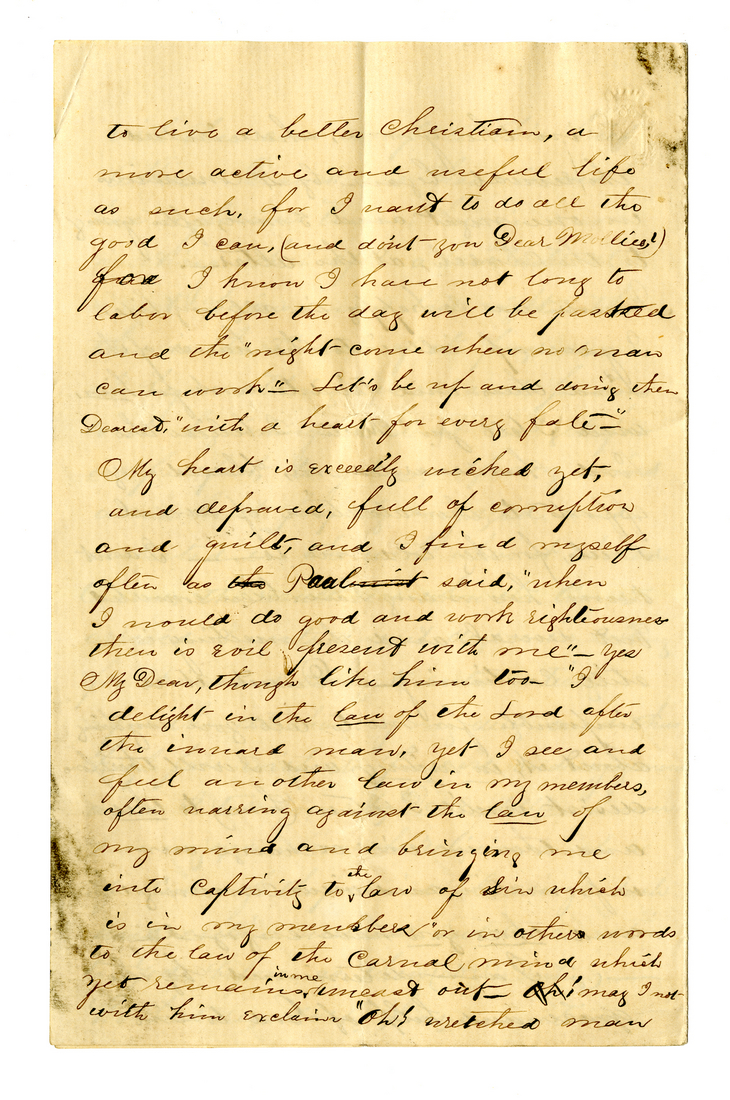 to live a better Christian, a
more active and useful life
as such, for I want to do all the
good I can, (and dont you Dear Mollie!)
for I know I have not long to
labor before the day will be passed
and the "night come when no man
can work" — Let's be up and doing then
Dearest, "with a heart for every fate —"
My heart is exceedly wicked yet,
and depraved, full of corruption
and guilt, and I find myself
often as the Paul said, "when
I would do good and work righteousness
then is evil present with me" — yes
My Dear, though like him too — "I
delight in the law of the Lord after
the inward man, yet I see and
feel another law in my members,
often warring against the law of
my mind and bringing me
into captivity to the law of Sin which
is in my members" or in others words
to the law of the carnal mind which
yet remains in me, uncast out — Oh! may I not
with him exclaim "Oh! wretched man